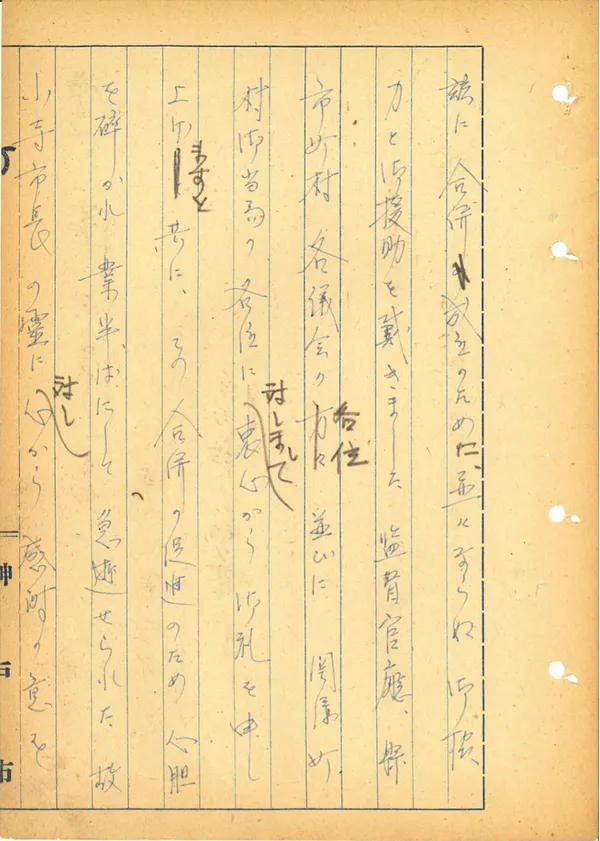 茲に合併成立のために、並々ならぬ御協
力と御援助を戴きました監督官庁、縣
市町村各議会の方々並びに関係町
各位
村御当局の各位に衷心から御礼を申し
対しまして
上げ
ますと
共に、この合併の促進のため心胆
を砕かれ業半ばにして急逝せられた故
小寺市長の霊に心から感謝の意を
対し
神戸市